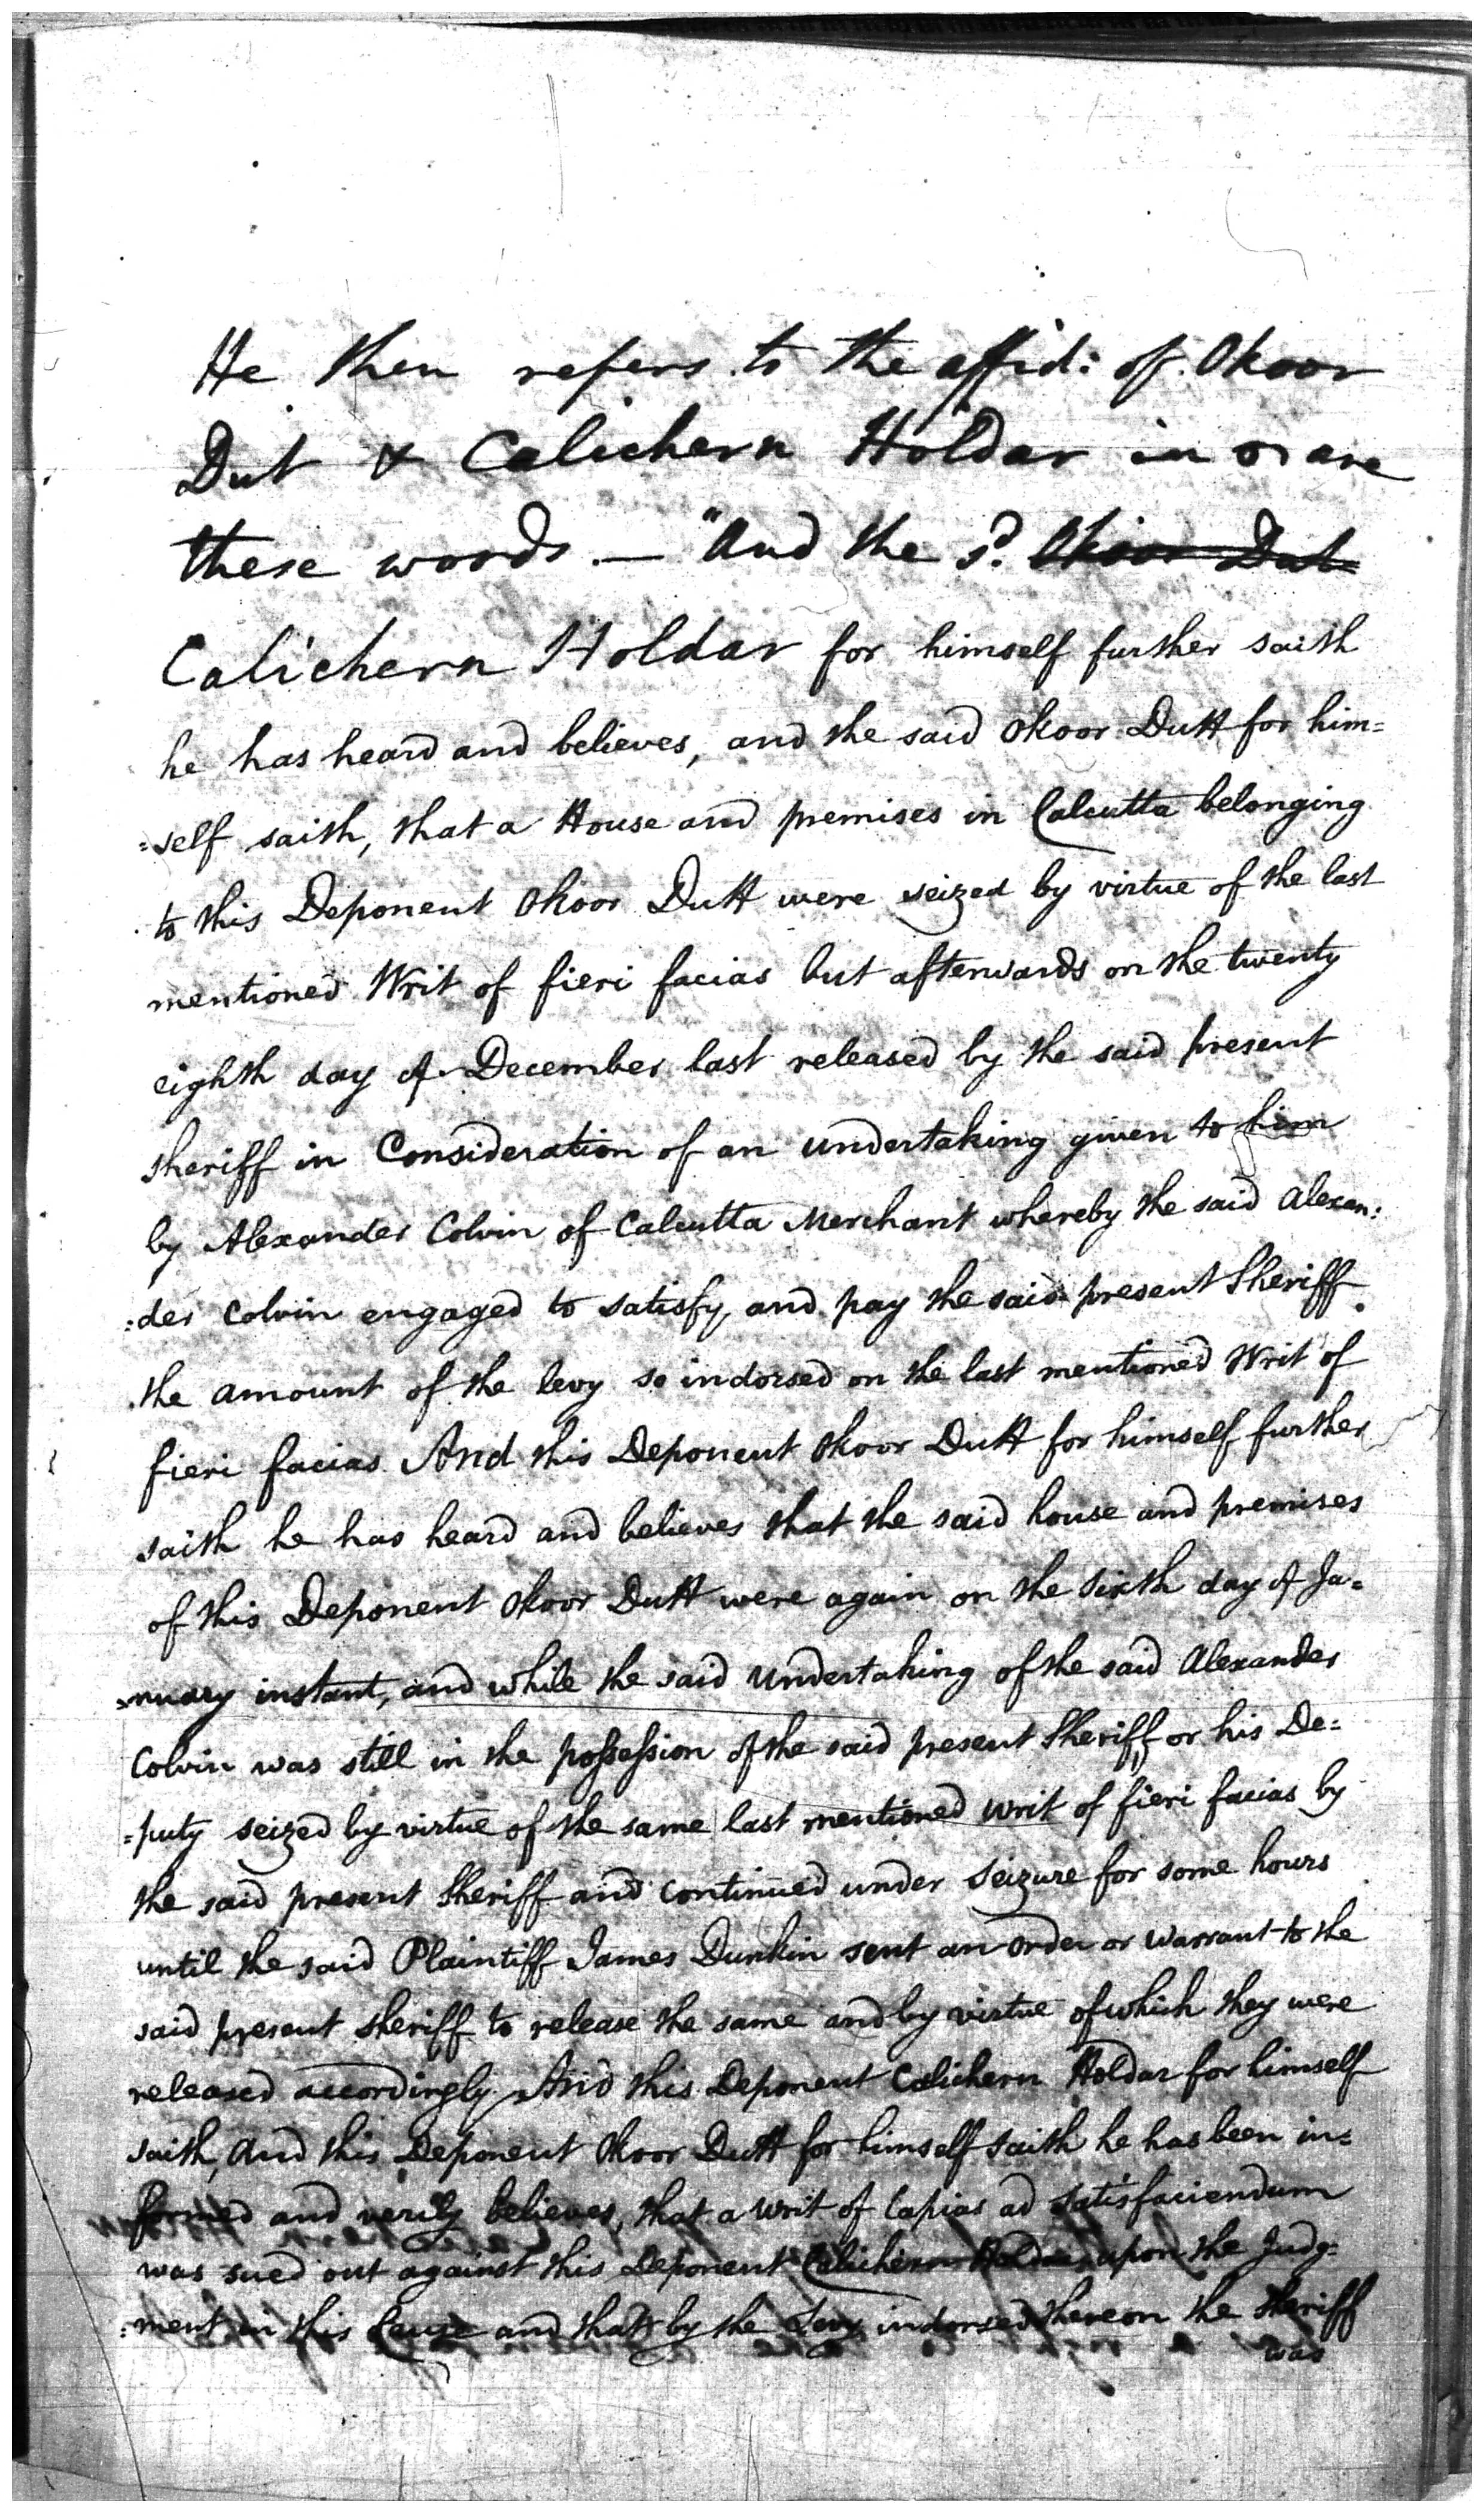 He then refers to the affid: of Okoor
Dut & Calichern Holdar in are
these words. — "And the sd. Okoor Dut
Calichern Holdar for himself further saith
he has heard and believes, and the said Okoor Dutt for him=
=self saith, that a House and premises in Calcutta belonging
to this Deponent Okoor Dutt were seized by virtue of the last
mentioned Writ of fieri facias but afterwards on the twenty
eighth day of December last released by the said present
sheriff in Consideration of an undertaking given to him
by Alexander Colvin of Calcutta Merchant whereby the said Alexan:
:der Colvin engaged to satisfy, and pay the said present Sheriff
the amount of the levy so indorsed on the last mentioned Writ of
fieri facias And this Deponent Okoor Dutt for himself further
saith he has heard and believes that the said house and premises
of this Deponent Okoor Dutt were again on the sixth day of Ja=
=nuary instant, and while the said undertaking of the said Alexander
Colvin was still in the possession of the said present Sheriff or his De=
=puty seized by virtue of the same last mentioned writ of fieri facias by
the said present Sheriff and continued under seizure for some hours
until the said Plaintiff James Dunkin sent an order or warrant to the
said present sheriff to release the same and by virtue of which they were
released accordingly And this Deponent Calichern Holdar for himself
saith, And this Deponent Okoor Dutt for himself saith he has been in=
formed and verily believes, that a writ of Capias ad satisfaciendum
was sued out against this Deponent Calichern Holdar upon the Judg=
=ment in this Cause and that by the Levy indorsed thereon the sheriff
was